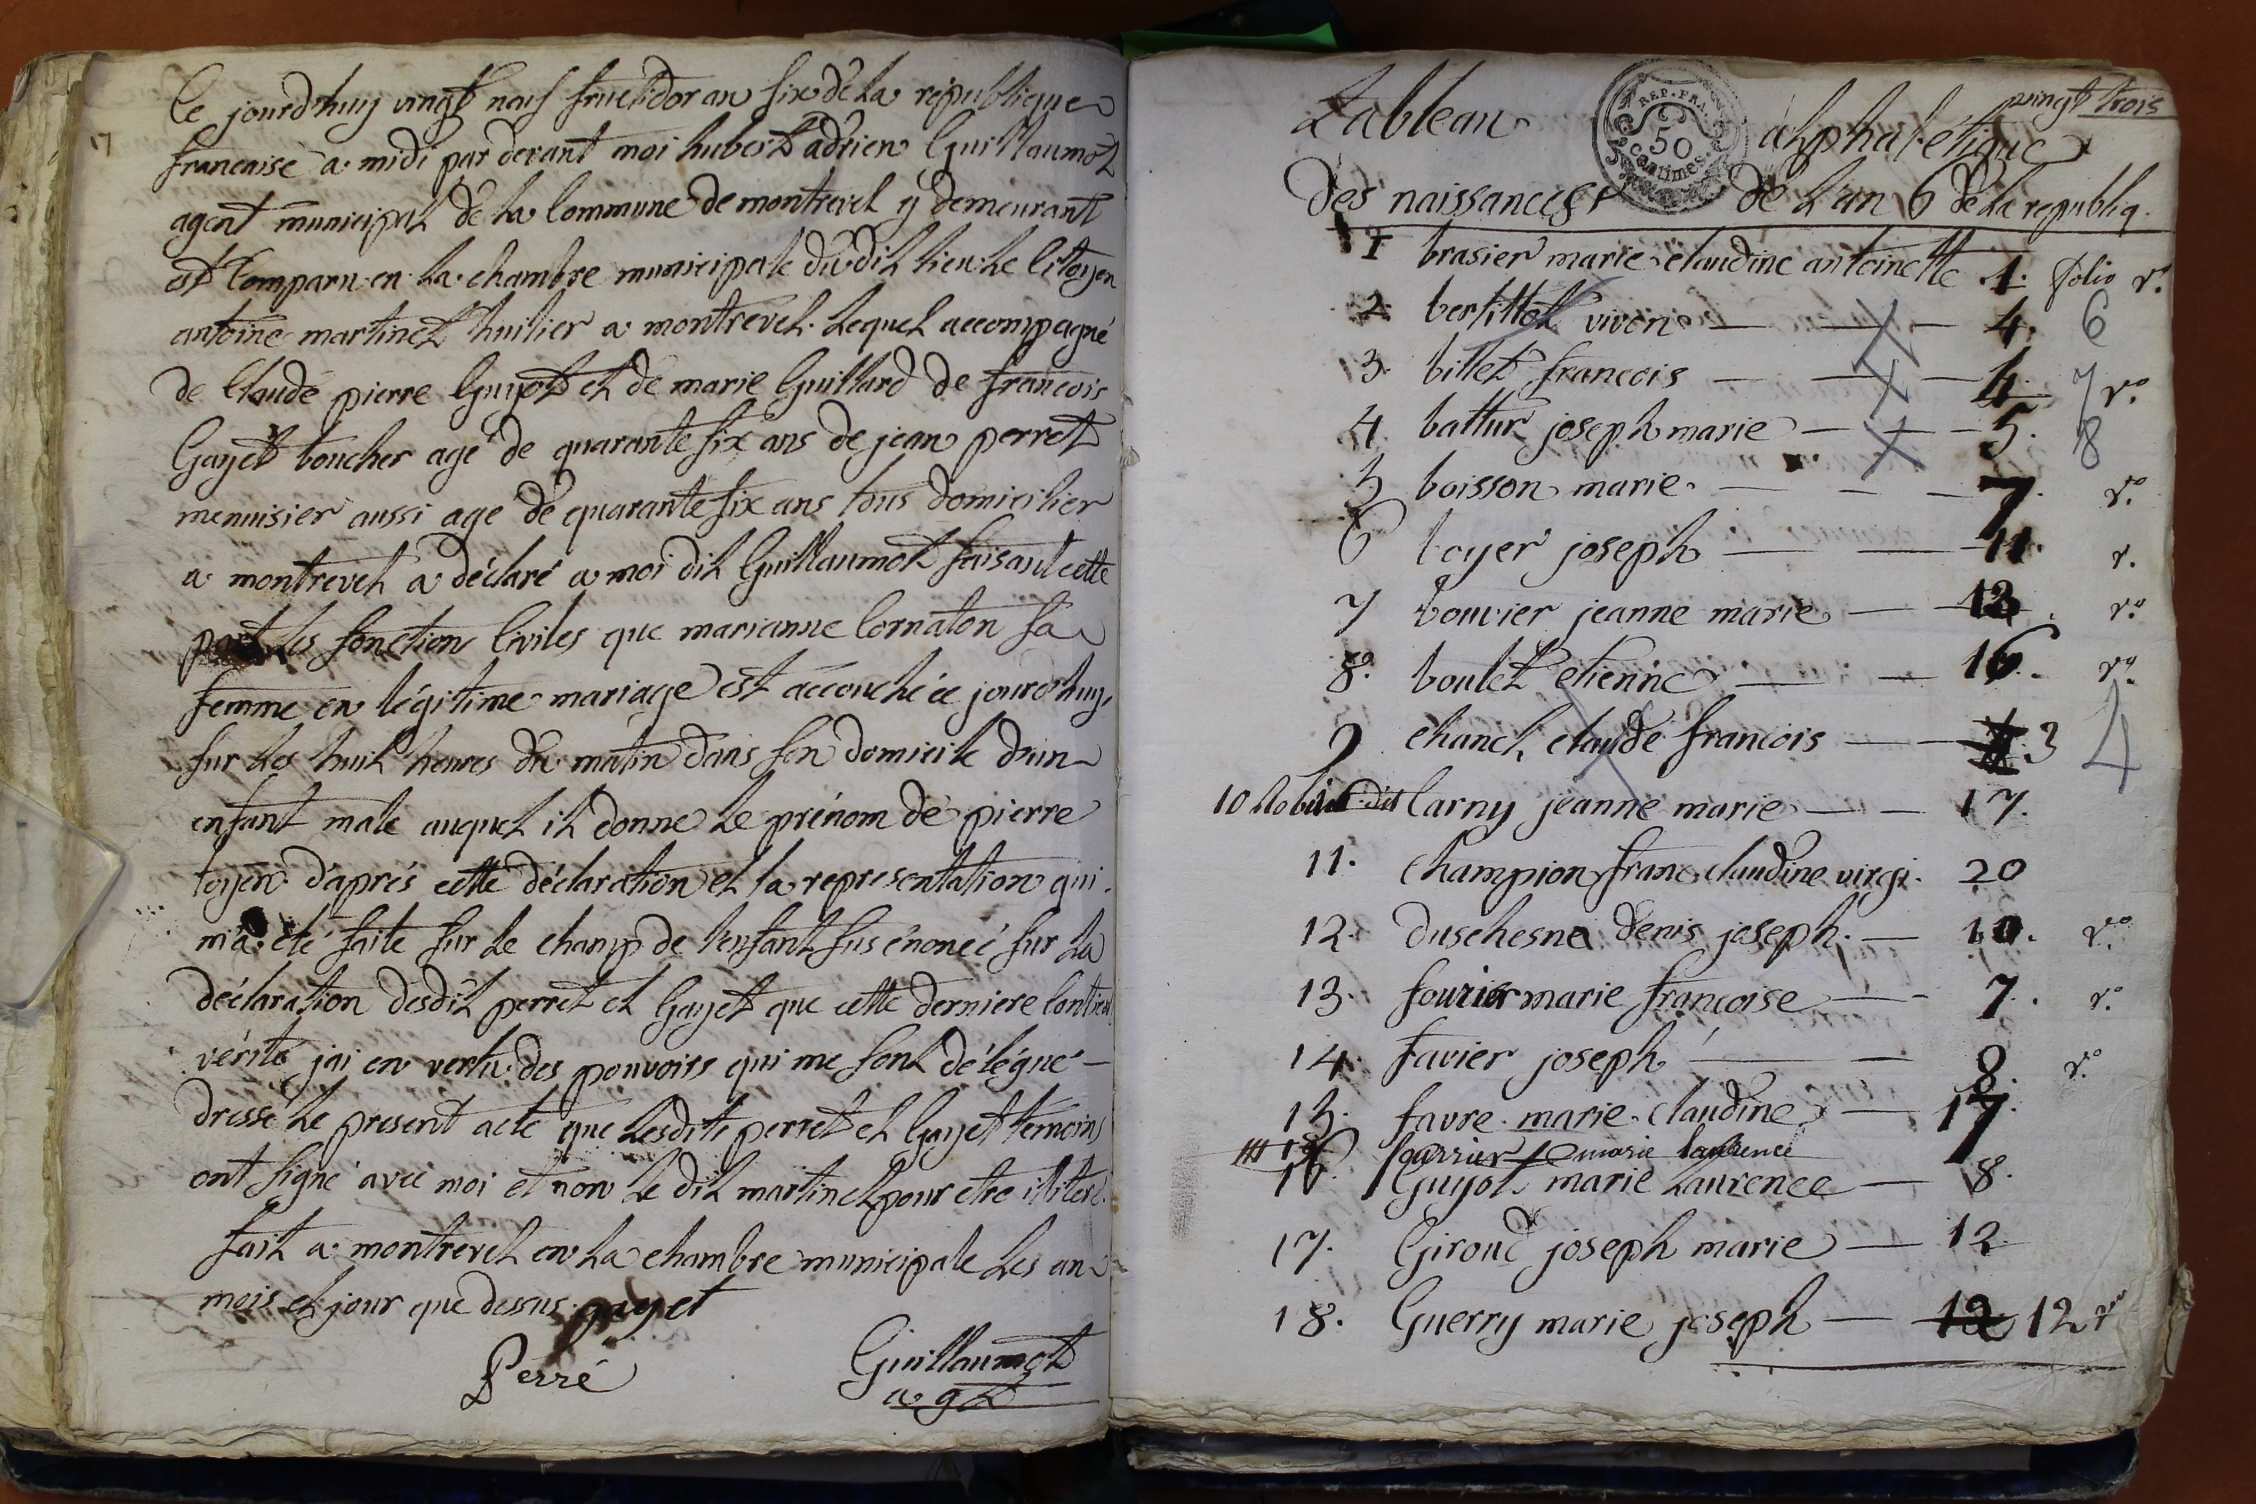 17
Ce jourdhuy vingt neuf fructidor an six de la republique
francaise a midi par devant moi hubert adrien Guillaumot
agent municipal de la Commune de montrevel y demeurant
est Comparu en la chambre municipale du dit lieu le Citoyen
antoine martinet huilier a montrevel lequel accompagné
de Claude pierre Guyot et de marie Guillard de francois
Gayet boucher agé de quarante six ans de jean perret
menuisier aussi agé de quarante six ans tous domicilier
a montrevel a déclaré a moi dit Guillaumot faisant cette
part les fonction Civiles que marianne Cornaton sa
femme en légitime mariage est accouchée ce jourdhuy
sur les huit heures du matin dans son domicile d'un
enfant male auquel il donne le prénom de pierre
loyën d'aprés cette déclaration et la representation qui
m'a été faite sur le champ de l'enfant sus énoncé sur la
déclaration desdit perret et Gayet que cette derniere Contient
vérité jai en vertu des pouvoirs qui me sont délégué
dressé le present acte que lesdits perret et Gayet temoins
ont signé avec moi et non le dit martinet pour etre illiteré
fait a montrevel en la chambre municipale les an
mois et jour que dessus gayet
Perré Guillaumot
agt
vingt trois
REP. FRA.
50
centimes
Tableau alphabétique
des naissances de L'an 6 de la republiq.
1 brasier marie claudine antoinette 1. folio r.o
2. vivon 4. 6
3. billet francois 4 7 v.o
4 battur joseph marie 5. 8
5 boisson marie 7. v.o
6 boyer joseph 11. r.
7 bouvier jeanne marie 13. v.o
8. boulet etienne 16. v.o
9 chanel claude francois 3 4
10 dit Carny jeanne marie 17.
11. Champion franc. claudine virgi. 20
12. duschesne denis joseph. 10. v.o
13. fourier marie françoise 7. v.o
14. favier joseph 8. v.o
15. favre marie claudine 17.
marie laurence
16. Guyot marie Laurence 8.
17. Giroud joseph marie 12
18. Guerry marie joseph 12 12 v.o